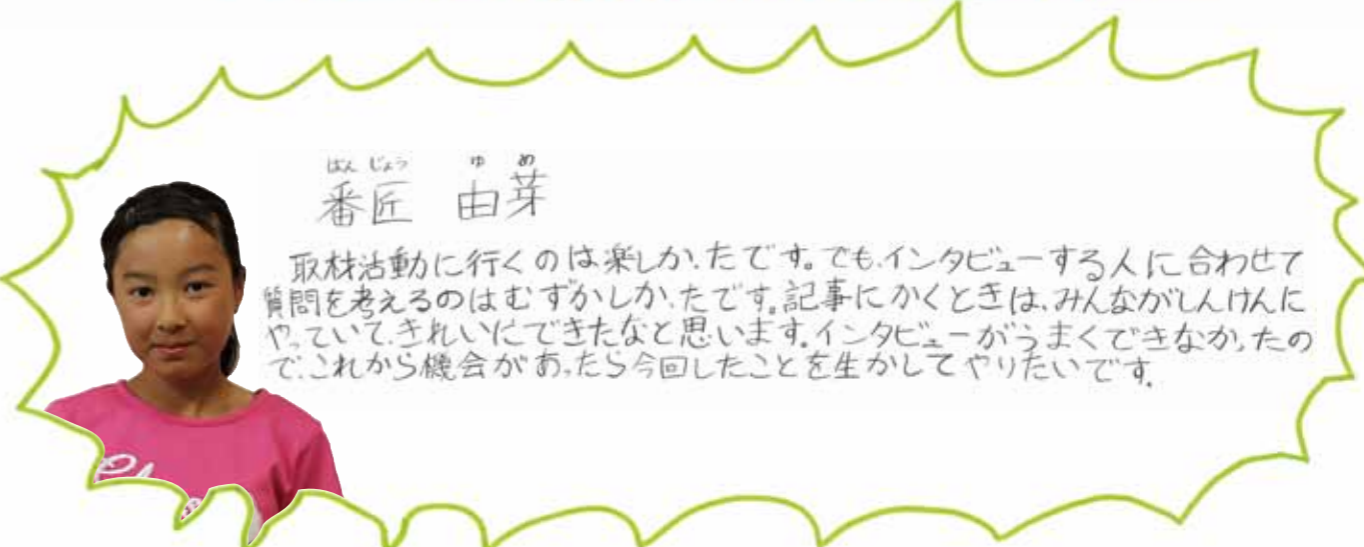 ばんじょう ゆめ
番匠 由芽
取材活動に行くのは楽しかったです。でも、インタビューする人に合わせて
質問を考えるのはむずかしかったです。記事にかくときは、みんながしんけんに
やっていて、きれいにできたなと思います。インタビューがうまくできなかったの
で、これから機会があったら今回したことを生かしてやりたいです。